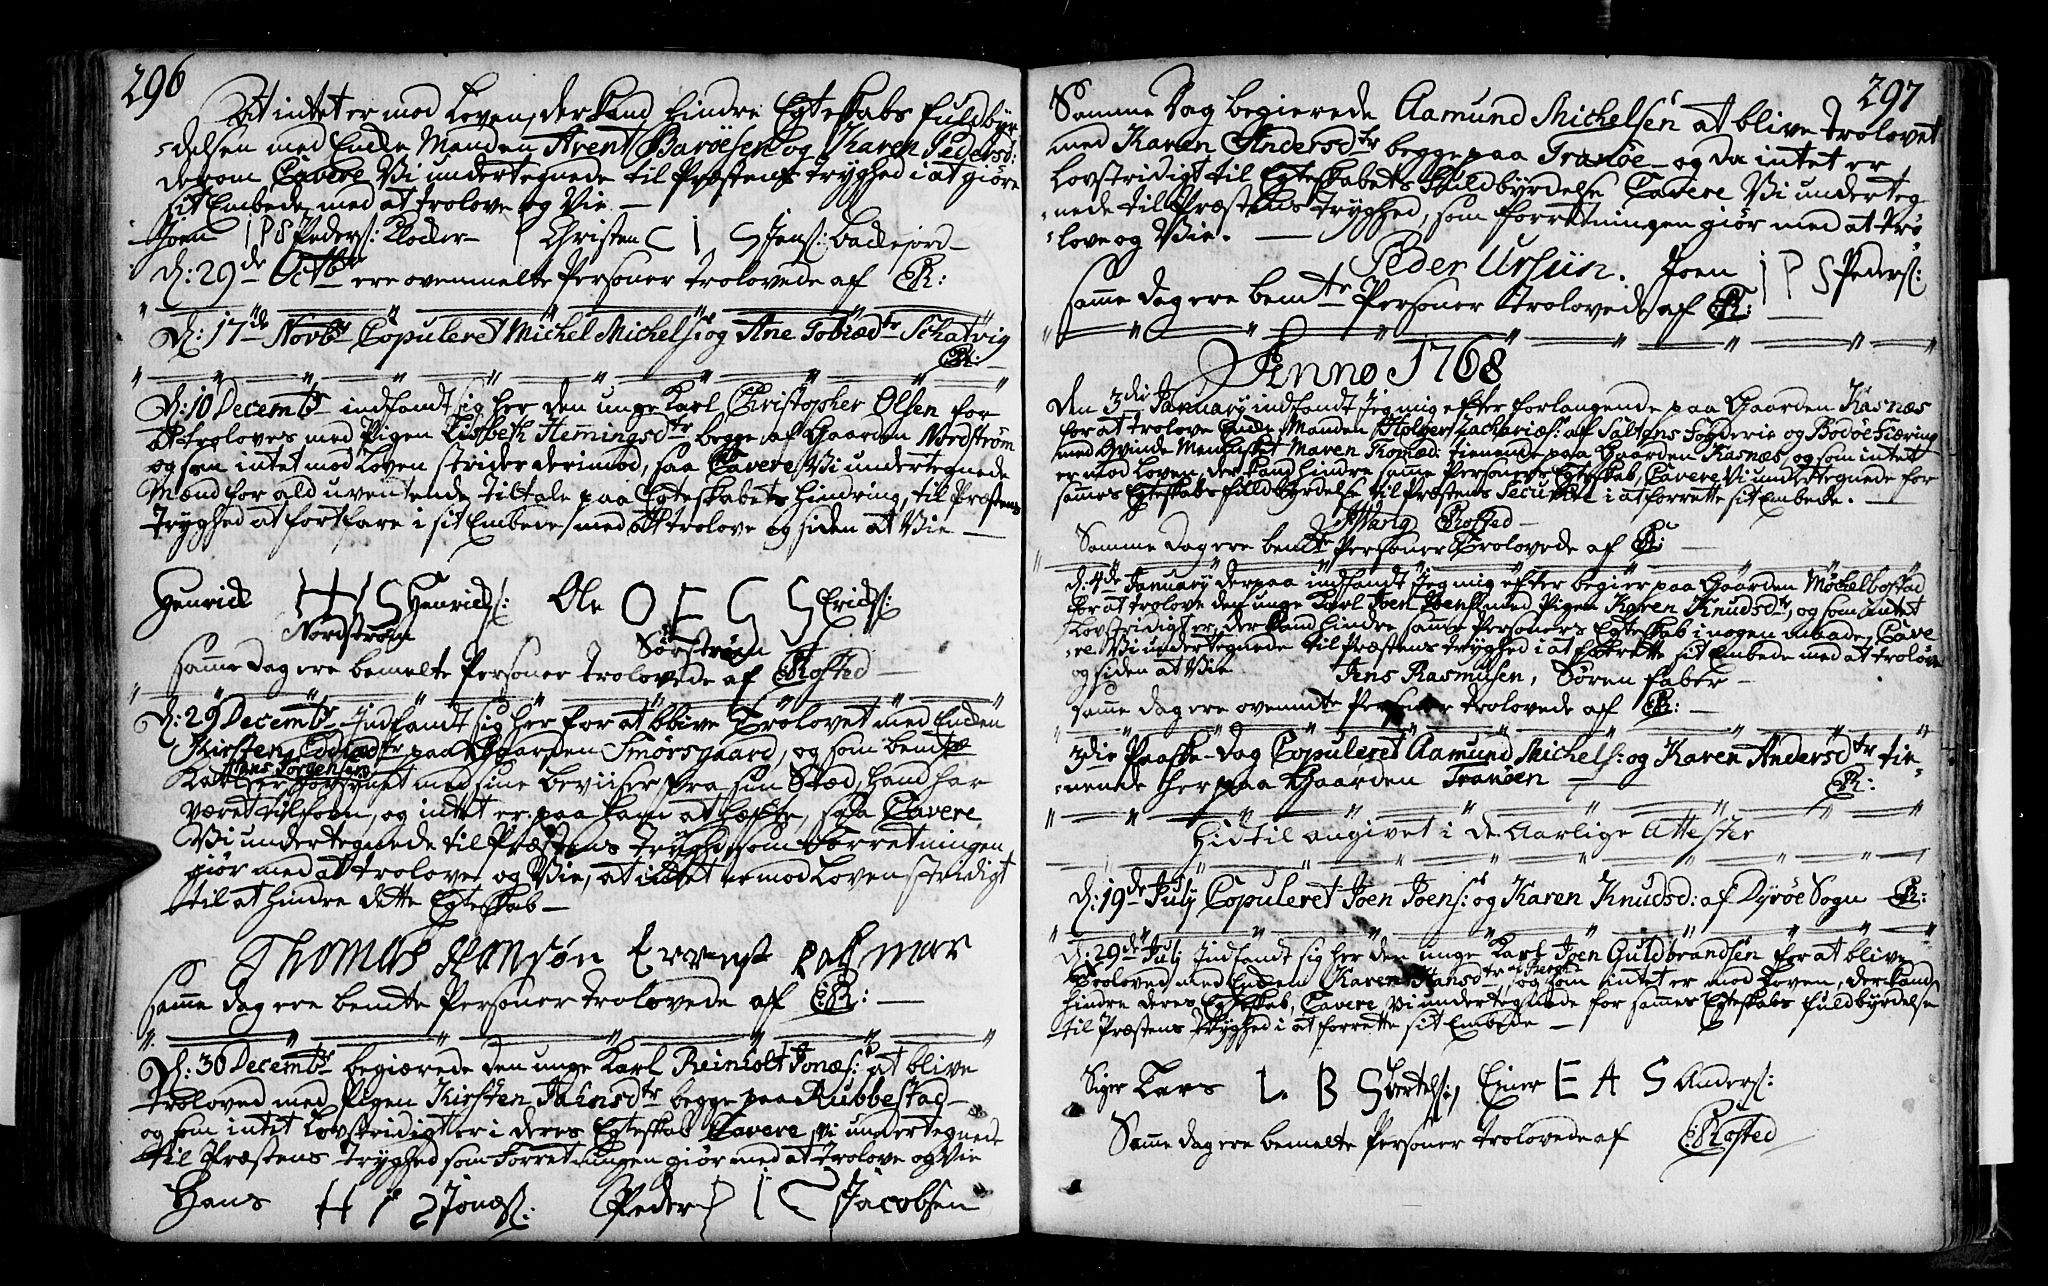 296
At intet er mod Loven, der kand hindre Egteskabs fuldbyr
delsen med Encke Manden Arent Baroesen og Karen Pedersd:
derom Cavere Vi undertegnede til Præstens tryghed i at giøre
sit Embede med at trolove og Vie. —
Joen IPS Peders: Klocker — Christen CIS Jens: Backejord —
D: 29de Octbr ere ovenmelte Personer trolovede af ER:
D: 17de Novbr Copuleret Michel Michels: og Ane Tobiæd tr Schatvig
ER:
D: 10 Decembr indfandt sig her den unge Karl Christopher Olsen for
at troloves med Pigen Lisbeth Hemingsdtr begge af Gaarden Nordstrøm
og som intet mod Loven strider derimod, saa Cavere Vi undertegnede
Mænd for ald uventende tiltale paa Egteskabets hindring, til Præstens
tryghed at fortfare i sit Embede med at trolove og siden at Vie —
Henrick HHS Henricks: Ole OES Ericks:
Nordstrøm Sørstrøm
samme dag ere bemelte Personer trolovede af ERofted —
D: 29 Decembr Indfandt sig her for at blive Trolovet med Encken
Kirsten tr paa Gaarden Smørsgaard, og som bemte
Hans Jørgensen
Karl er forsynet med sine beviiser fra sin Stæd, hand har
været tilforn, og intet er paa ham at hæfte, saa Cavere
Vi undertegnede til Præstens Tryghed, som Forretningen
giør med at trolove og Vie, at intet er mod Loven stridigt
til at hindre dette Egteskab —
Thomas Hansøn Errenst palmar
samme dag ere bemte Personer trolovede af ER: —
D: 30 Decembr begiærede den unge Karl Reinholt Jonæs: at blive
troloved med Pigen Kirsten Jahnsdtr begge paa Rubbestad —
og som intet Lovstridigt er i deres Egteskab Cavere vi undertegnede
til Præstens tryghed som Forretningen giør med at trolove og Vie
Hans HIS Jonæs: Peder PIS Jacobsen
297
Samme Dag begierede Aamund Michelsen at blive trolovet
med Karen Andersdtr begge paa Tranøe — og da intet er
Lovstridigt til Egteskabets Fuldbyrdelse Cavere Vi underteg
nede til Præstens tryghed, som forretningen giør med at tro
love og Vie. —
Peder Ursiin. Joen IPS Peders:
samme dag ere bemte Personer trolovede af ER: —
Anno 1768
Den 3die January indfandt Jeg mig efter forlangende paa Gaarden Kasnæs
for at trolove Encke Manden Holger Zachariæs: af Saltens Fogderie og Bodøe Fiæring
med Qvinde Mennisket Maren Thomæd: tienende paa Gaarden Kasnæs, og som intet
er mod Loven, der kand hindre samme Personers Egteskab, Cavere Vi undertegnede for
sammes Egteskabs fuldbyrdelse til Præstens Securitet i at forrette sit Embede. —
Wang ERofted —
Samme dag ere bemte Personer Trolovede af ER: —
D: 4de January derpaa indfandt Jeg mig efter begier paa Gaarden Møckelbostad
for at trolove den unge Karl Joen Joens: med Pigen Karen Knudsdtr, og som intet
Lovstridigt er, der kand hindre samme Personers Egteskab i nogen maade, Cave
re Vi undertegnede til Præstens tryghed i at forrette sit Embede med at trolove
og siden at Vie Jens Rasmusen, Søren Faber —
samme dag ere ovenmte Personer trolovede af ER: —
3die Paaske-dag Copuleret Aamund Michels: og Karen Andersdtr tie
nende her paa Gaarden Tranøen —
ER:
Hidtil angivet i de Aarlige Attester
D: 19de July Copuleret Joen Joens: og Karen Knudsd: af Dyrøe Sogn ER:
D: 29de July Indfandt sig her den unge Karl Joen Guldbrandsen for at blive
Troloved med Encken Karen Hansdtr af Berg og som intet er mod Loven, der kand
hindre deres Egteskab, Cavere vi undertegnede for sammes Egteskabs fuldbyrdelse
til Præstens tryghed i at forrette sit Embede —
Siger Lars LBS Bertels:, Einer EAS Anders:
Samme dag ere bemelte Personer trolovede af ERofted